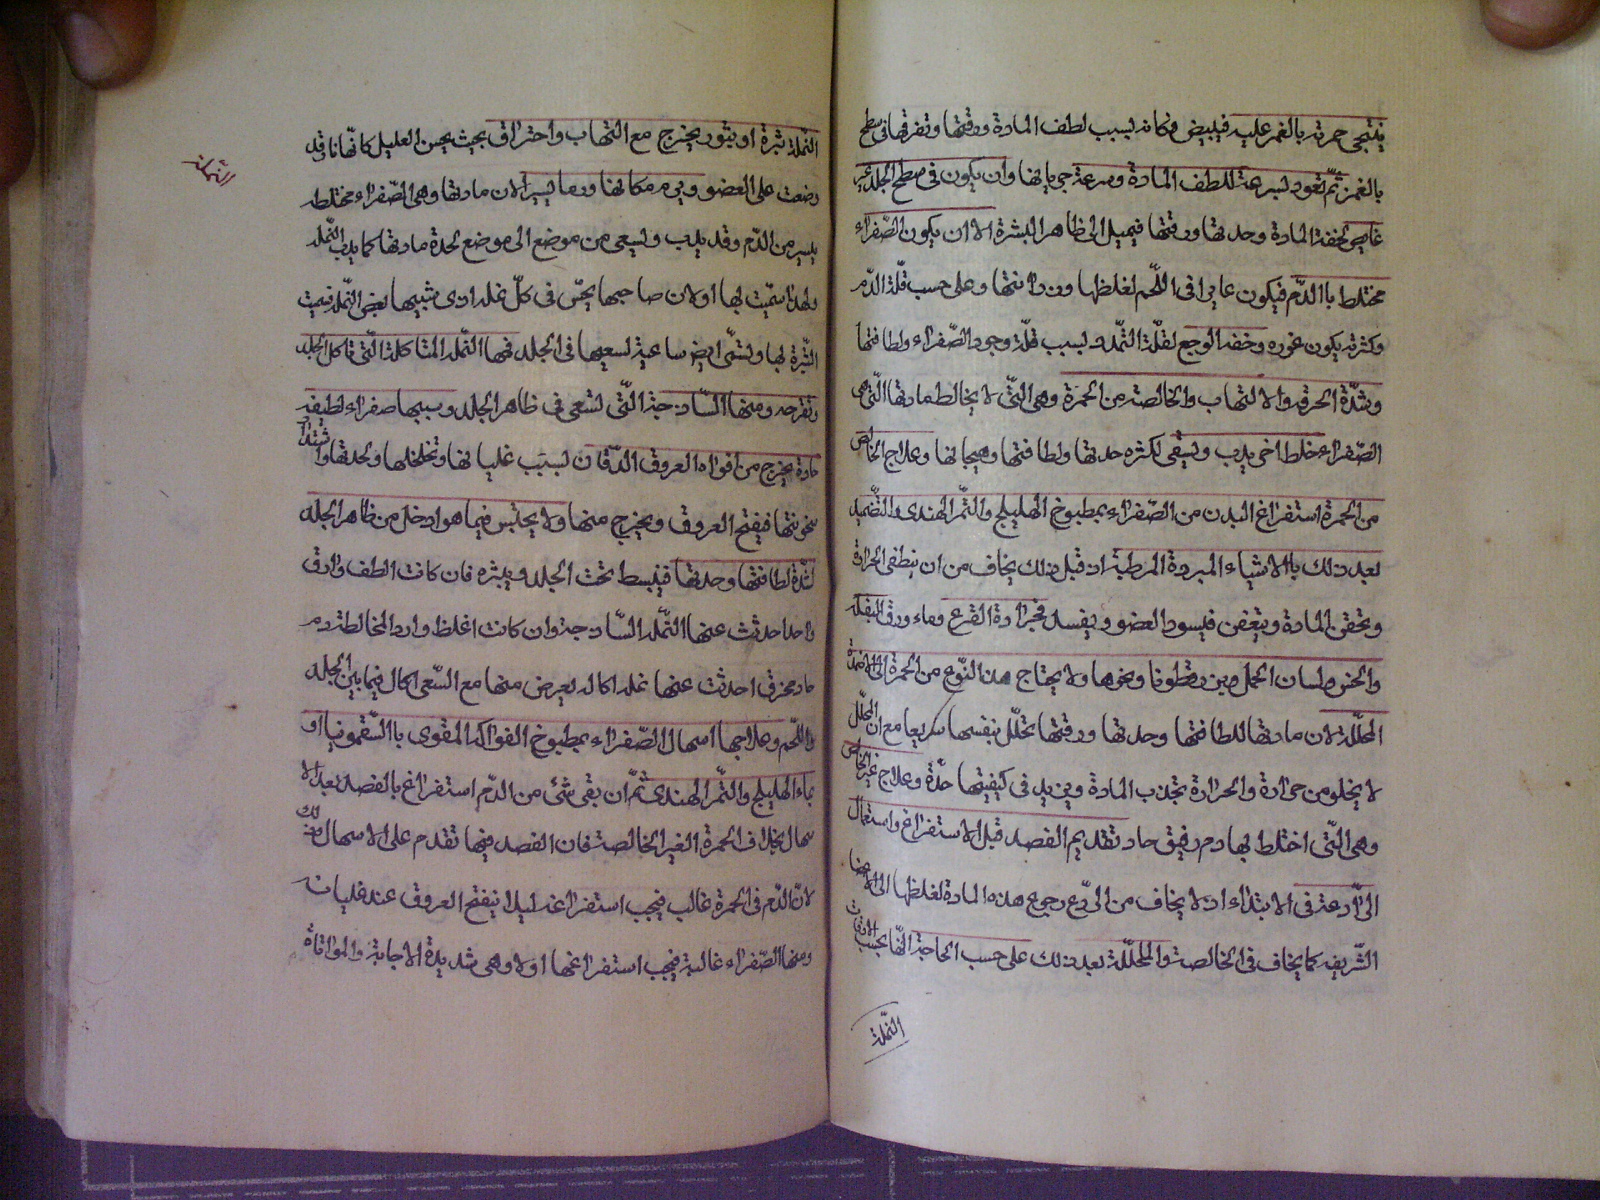 فينتحى حمرته بالغمز عليه فيبيض مكانه لسبب لطف المادة ورقتها وتفرقها فى سطح
بالغمز ثم تعود لسرعة للطف المادة وسرعة جريانها وان يكون فى سطح الجلد غير
غايص لخفة المادة وحدتها ورقتها فيميل الى ظاهر البشرة الا ان يكون الصّفراء
مختلط باالدّم فيكون غايرا فى اللّحم لغلظها ورزانتها وعلى حسب قلّة الدّم
وكثرته يكون غوره وخفة الوجع لقلّة التمدد لسبب قلّة وجود الصّفراء ولطافتها
وشدّة الحرقة والالتهاب والخالصة من الحمرة وهى الّتى لا يخالط مادتها الّتى هى
الصّفراء خلط اخر يدب ويسعى لكثره حدتها ولطافتها وهيجانها وعلاج الخالص
من الحمرة استفراغ البدن من الصّفراء بمطبوخ الهليلج والتّمر الهندى والتّضميد
بعد ذلك باالاشياء المبردة المرطبة اذ قبل ذلك يخاف من ان ينطفى الحرارة
وتحقن المادة ويتعفن فيسود العضو ويفسد فجرادة القرع وماء ورق البقلة
والخس ولسان الحمل وبزر قطونا ونحوها ولا يحتاج هذا النّوع من الحمرة الى الاضمدة
المحلّلة لان مادتها للطافتها وحدتها ورقتها تحلّل بنفسها سريعا مع ان المحلّل
لا يخلو من حرارة والحرارة تجذب المادة ويزيد فى كيفيتها حدّة وعلاج غير الخالص
وهى الّتى اختلط بها دم رقيق حاد تقديم الفصد قبل الاستفراغ واستعمال
الرّادعة فى الابتداء اذ لا يخاف من الرّدع رجوع هذه المادة لغلظها الى الاعضا
الشّريفه كما يخاف فى الخالصة والمحلّلة بعد ذلك على حسب الحاجة الّيها بحسب الاوقات
النّملة
النملة
النّملة بثرة او بثور يخرج مع التهاب واحتراق بحيث يحس العليل كانّها نار قد
وضعت على العضو ويرم مكانها ورما يسيرا لان مادتها وهى الصّفراء مختلطه
بيسير من الدّم وقد يدب ويسعى من موضع الى موضع لحدة مادتها كما يدب النّملة
ولهذا سمّيت بها او لان صاحبها يحسّ فى كلّ نملة اذى شبيها بعض النّملة فسميت
البثرة لها وتسمّى ايضا ساعية لسعيها فى الجلد فمنها النّملة المتاكلة الّتى تاكل الجلد
وتقرحه ومنها السّاذجة الّتى تسعى فى ظاهر الجلد وسببها صفراء لطيفة
حادة يخرج من افواه العروق الدّقاق لسبب غليانها وتخلخلها ولحدتها واشتداد
سخونتها فيفتح العروق ويخرج منها ولا يحتبس فيما هو ادخل من ظاهر الجلد
لشدّة لطافتها وحدتها فينبسط تحت الجلد ويبثره فان كانت الطف وارق
واحد احدثت عنها النّملة السّاذجة وان كانت اغلظ واردا لمخالطة دم
حاد محترق احدثت عنها نملة اكالة يعرض منها مع السّعى اكال فيما بين الجلد
واللّحم وعلاجها اسهال الصّفراء بمطبوخ الفواكه المقوى باالسّقمونيا او
بماء الهليلج والتّمر الهندى ثمّ ان بقى شئ من الدّم استفراغ بالفصد بعد الا
سهال بخلاف الحمرة الغير الخالصة فان الفصد فيها تقدم على الاسهال وذلك
لانّ الدّم فى الحمرة غالب فيجب استفراغه لئلا ينفتح العروق عند غليانه
ومنها الصّفراء غالبة فيجب استفراغها اولا وهى شديدة الاجابة والمواتاة